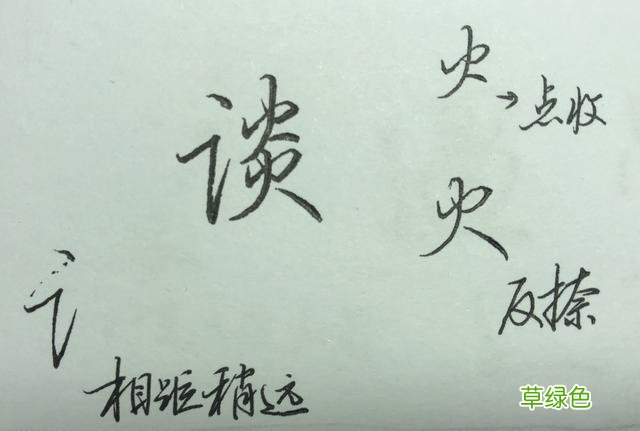 火
→点收
谈
火
讠
反捺
相距稍远
草绿色